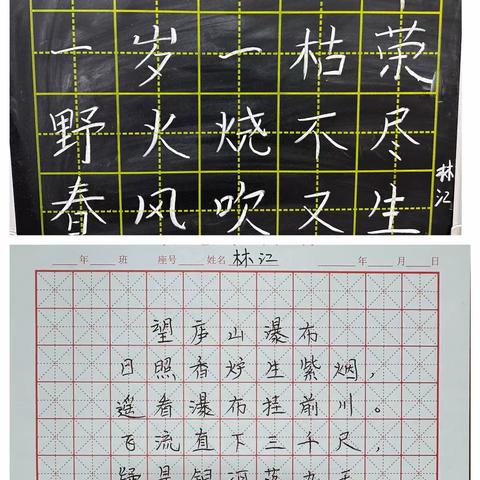 一岁一枯荣
野火烧不尽
春风吹又生
林江
年 班 座号 姓名 林江 年 月 日
望庐山瀑布
日照香炉生紫烟，
遥看瀑布挂前川。
飞流直下三千尺，
疑是银河落九天